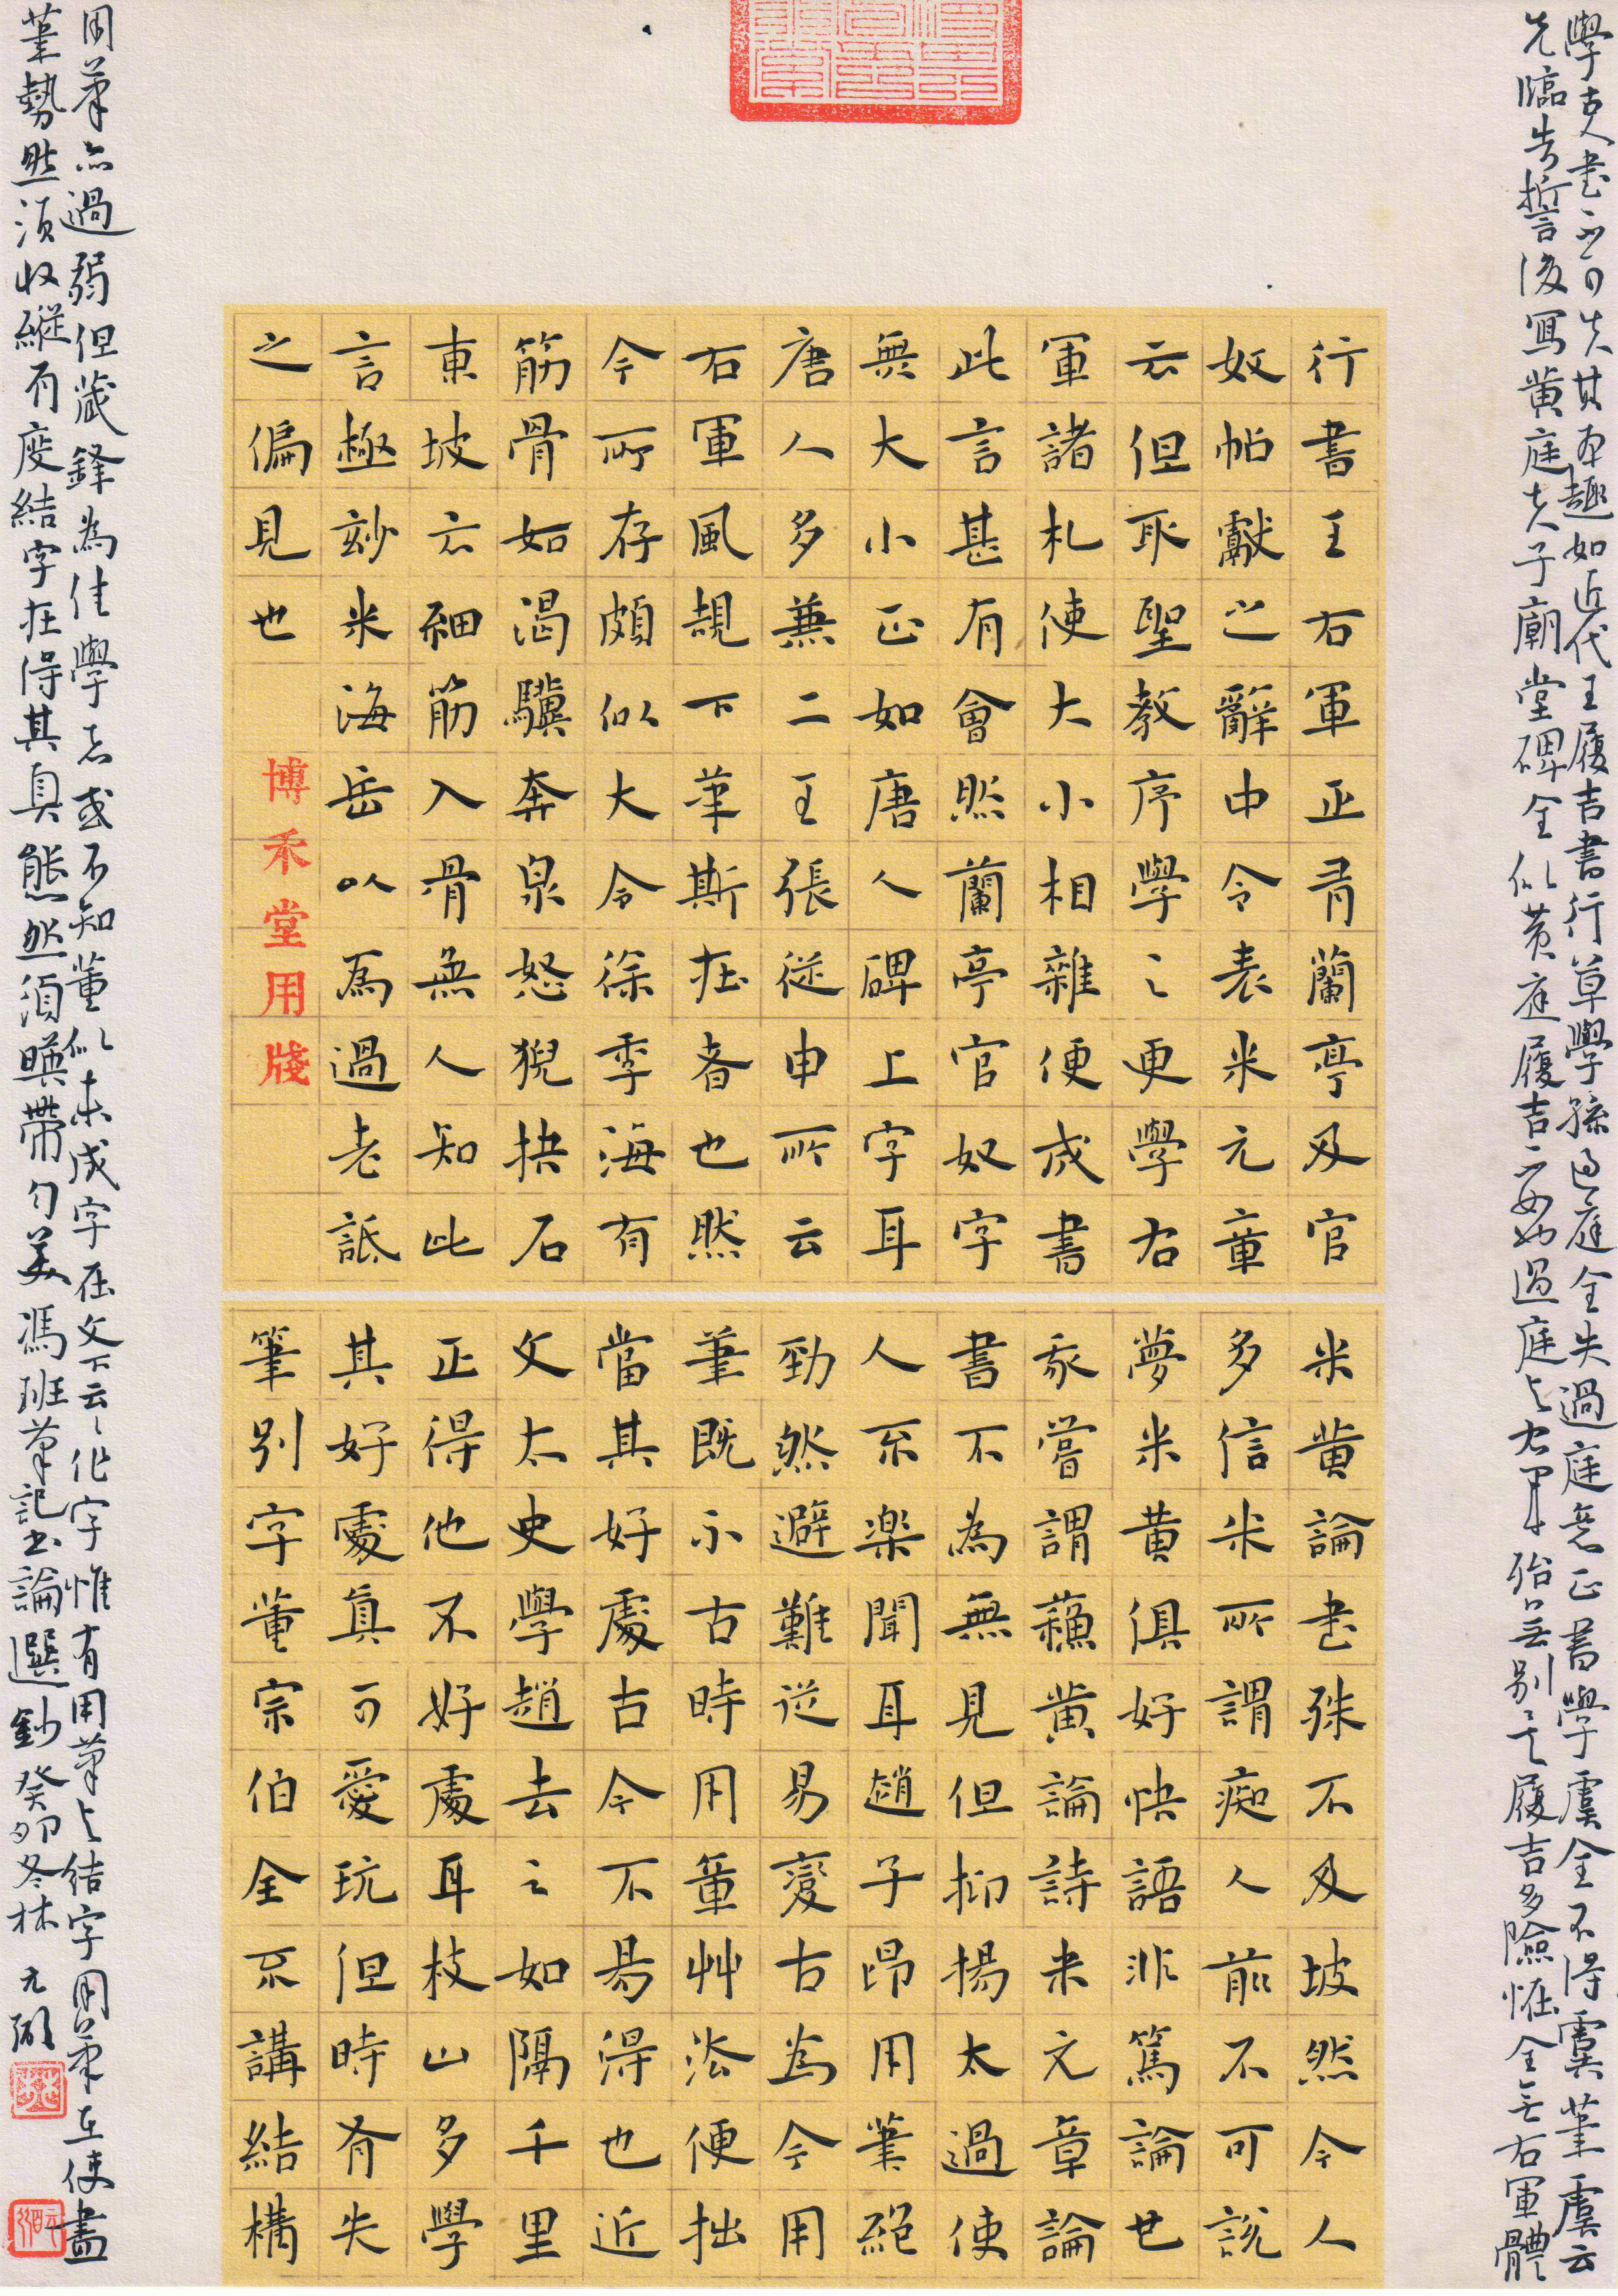 學古人書不可失其本趣如近代王履吉書行草學孫過庭全失過庭意正書學虞全不得虞筆虞云
先臨告誓後寫黃庭夫子廟堂碑全似黃庭履吉不如也過庭與右軍殆無別處履吉多險怪全無右軍體
行書王右軍正有蘭亭及官
奴帖獻之辭中令表米元章
云但取聖教序學之更學右
軍諸札使大小相雜便成書
此言甚有會然蘭亭官奴字
無大小正如唐人碑上字耳
唐人多兼二王張從申所云
右軍風規下筆斯在者也然
今所存頗似大令徐季海有
筋骨如渴驥奔泉怒猊抉石
東坡云細筋入骨無人知此
言極妙米海岳以為過老詆
之偏見也
博禾堂用牋
米黃論書殊不及坡然今人
多信米所謂痴人前不可說
夢米黃俱好快語非篤論也
我嘗謂蘇黃論詩米元章論
書不為無見但抑揚太過使
人不樂聞耳趙子昂用筆絕
勁然避難從易變古為今用
筆既不古時用章艸法便拙
當其好處古今不易得也近
文太史學趙去之如隔千里
正得他不好處耳枝山多學
其好處真可愛玩但時有失
筆別字董宗伯全不講結構
用筆亦過弱但藏鋒為佳學者或不知董似未成字在文下云云作字惟有用筆與結字用筆在使盡
筆勢然須收縱有度結字在得其真態然須映帶勻美馮班筆記書論選鈔癸卯冬林元硕